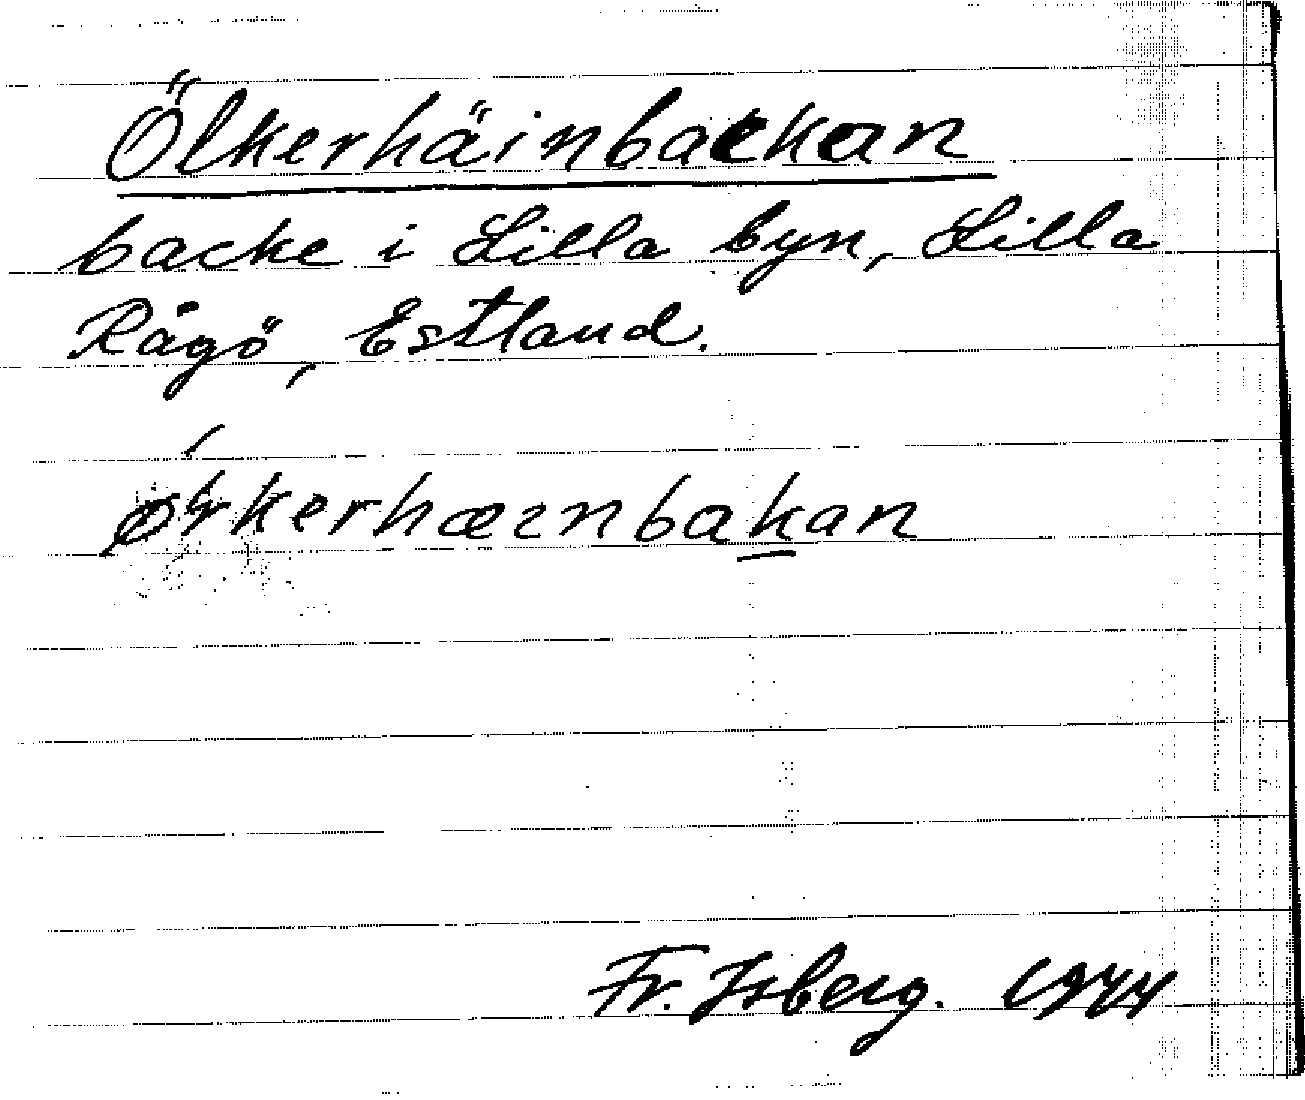 Ölkerhäinbackan
backe i Lilla byn, Lilla
Rågö, Estland.
ørkerhæɪnbakan
Fr. Isberg. 1944